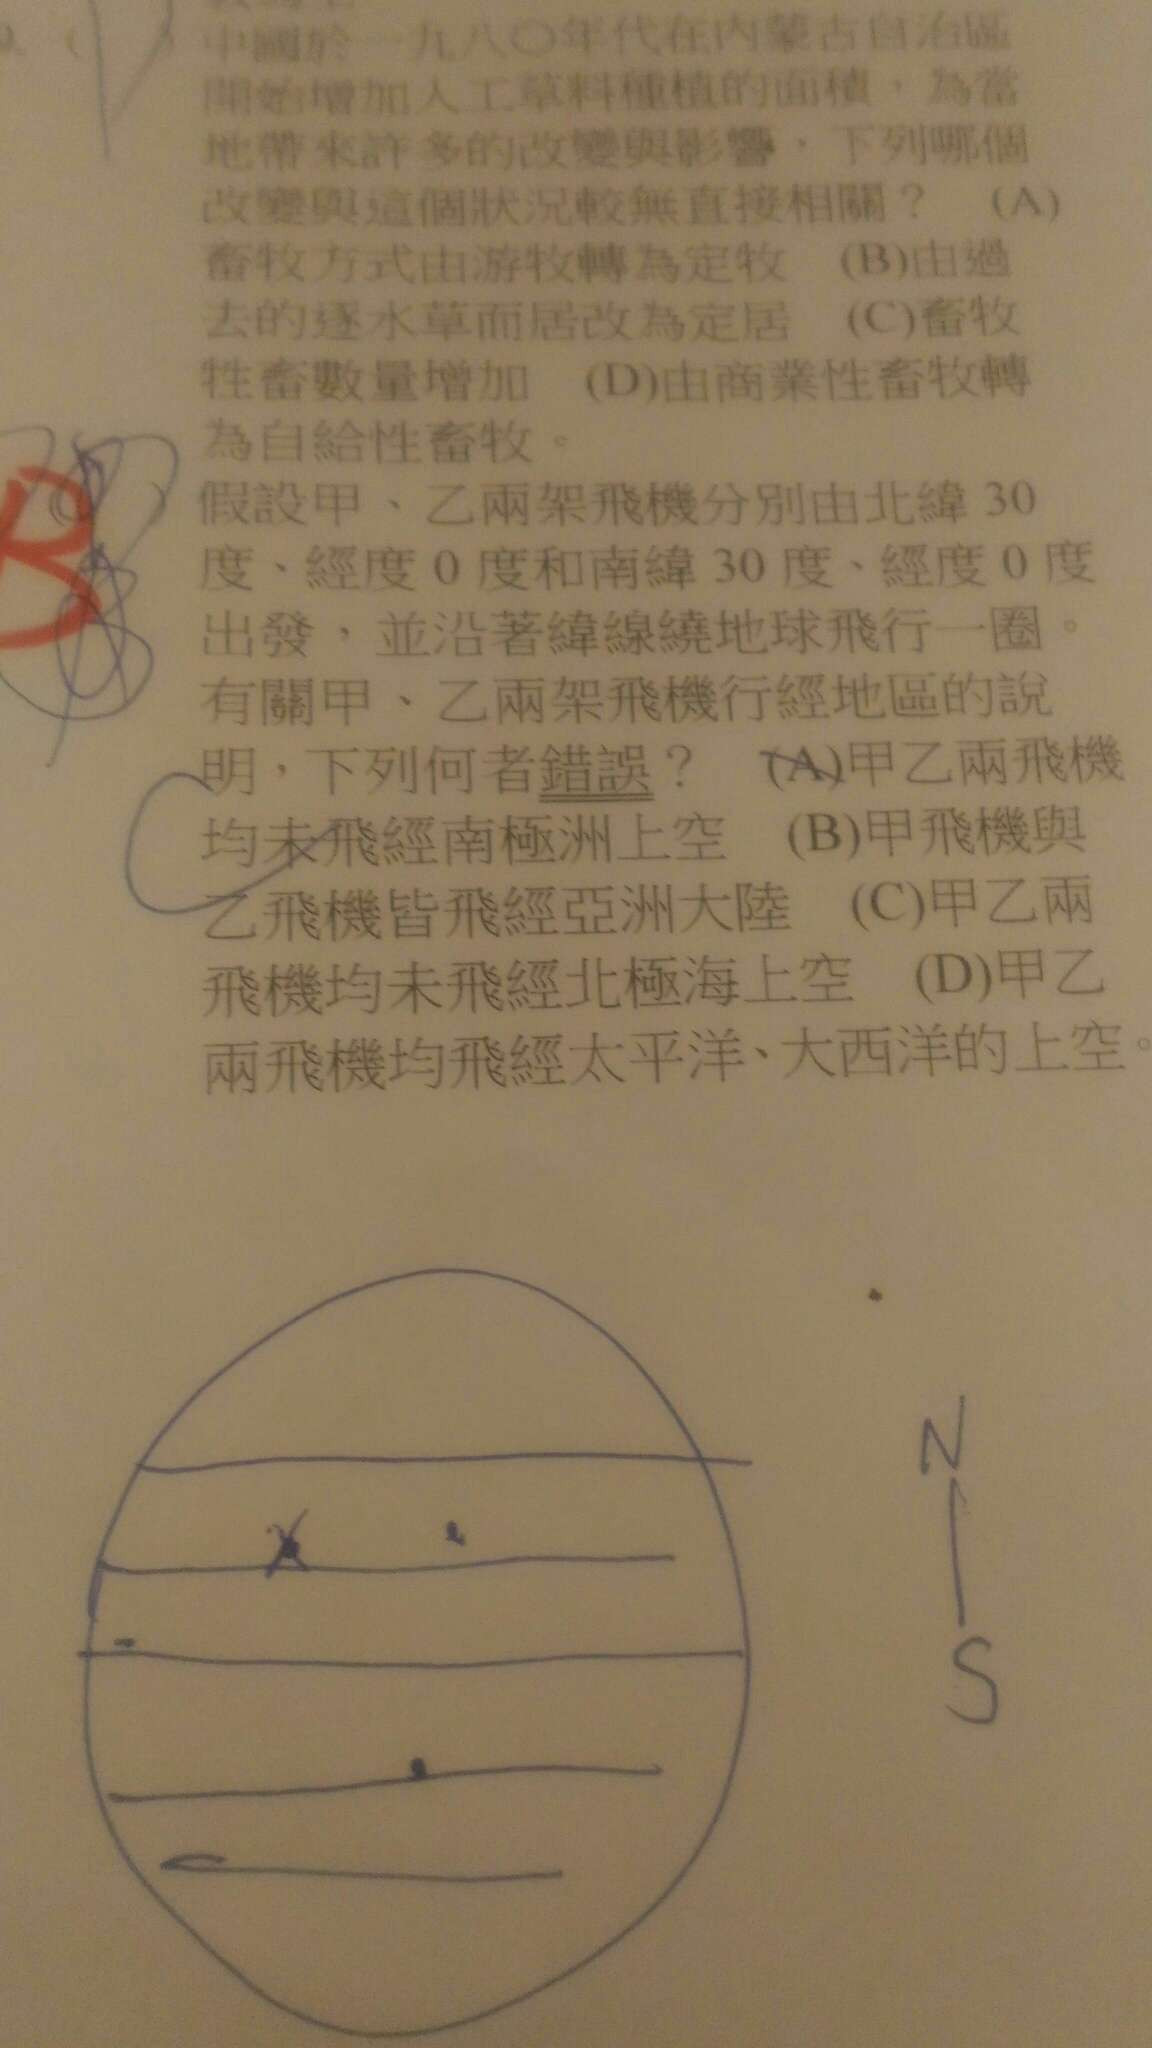 中國於一九八〇年代在內蒙古自治區
開始增加人工草料種植的面積，為當
地帶來許多的改變與影響，下列哪個
改變與這個狀況較無直接相關？ (A)
畜牧方式由游牧轉為定牧 (B)由過
去的逐水草而居改為定居 (C)畜牧
牲畜數量增加 (D)由商業性畜牧轉
為自給性畜牧。
B ( ) 假設甲、乙兩架飛機分別由北緯 30
度、經度 0 度和南緯 30 度、經度 0 度
出發，並沿著緯線繞地球飛行一圈。
有關甲、乙兩架飛機行經地區的說
明，下列何者錯誤？ (A)甲乙兩飛機
均未飛經南極洲上空 (B)甲飛機與
乙飛機皆飛經亞洲大陸 (C)甲乙兩
飛機均未飛經北極海上空 (D)甲乙
兩飛機均飛經太平洋、大西洋的上空。
N
S